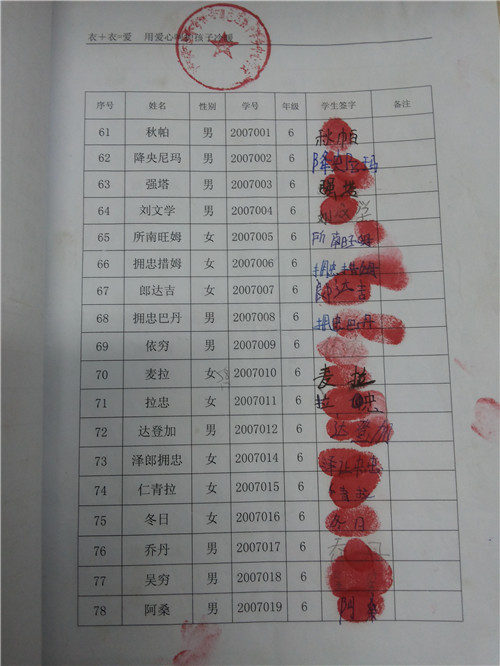 衣＋衣=爱 用爱心 孩子冷暖
序号 姓名 性别 学号 年级 学生签字 备注
61 秋帕 男 2007001 6 秋帕
62 降央尼玛 男 2007002 6 降央尼玛
63 强塔 男 2007003 6 强塔
64 刘文学 男 2007004 6 刘文学
65 所南旺姆 女 2007005 6 所南旺姆
66 拥忠措姆 女 2007006 6 拥忠措姆
67 郎达吉 女 2007007 6 郎达吉
68 拥忠巴丹 男 2007008 6 拥忠巴丹
69 依穷 男 2007009 6
70 麦拉 女 2007010 6 麦拉
71 拉忠 女 2007011 6 拉忠
72 达登加 男 2007012 6 达登加
73 泽郎拥忠 女 2007014 6
74 仁青拉 女 2007015 6
75 冬日 女 2007016 6 冬日
76 乔丹 男 2007017 6
77 吴穷 男 2007018 6
78 阿桑 男 2007019 6 阿桑